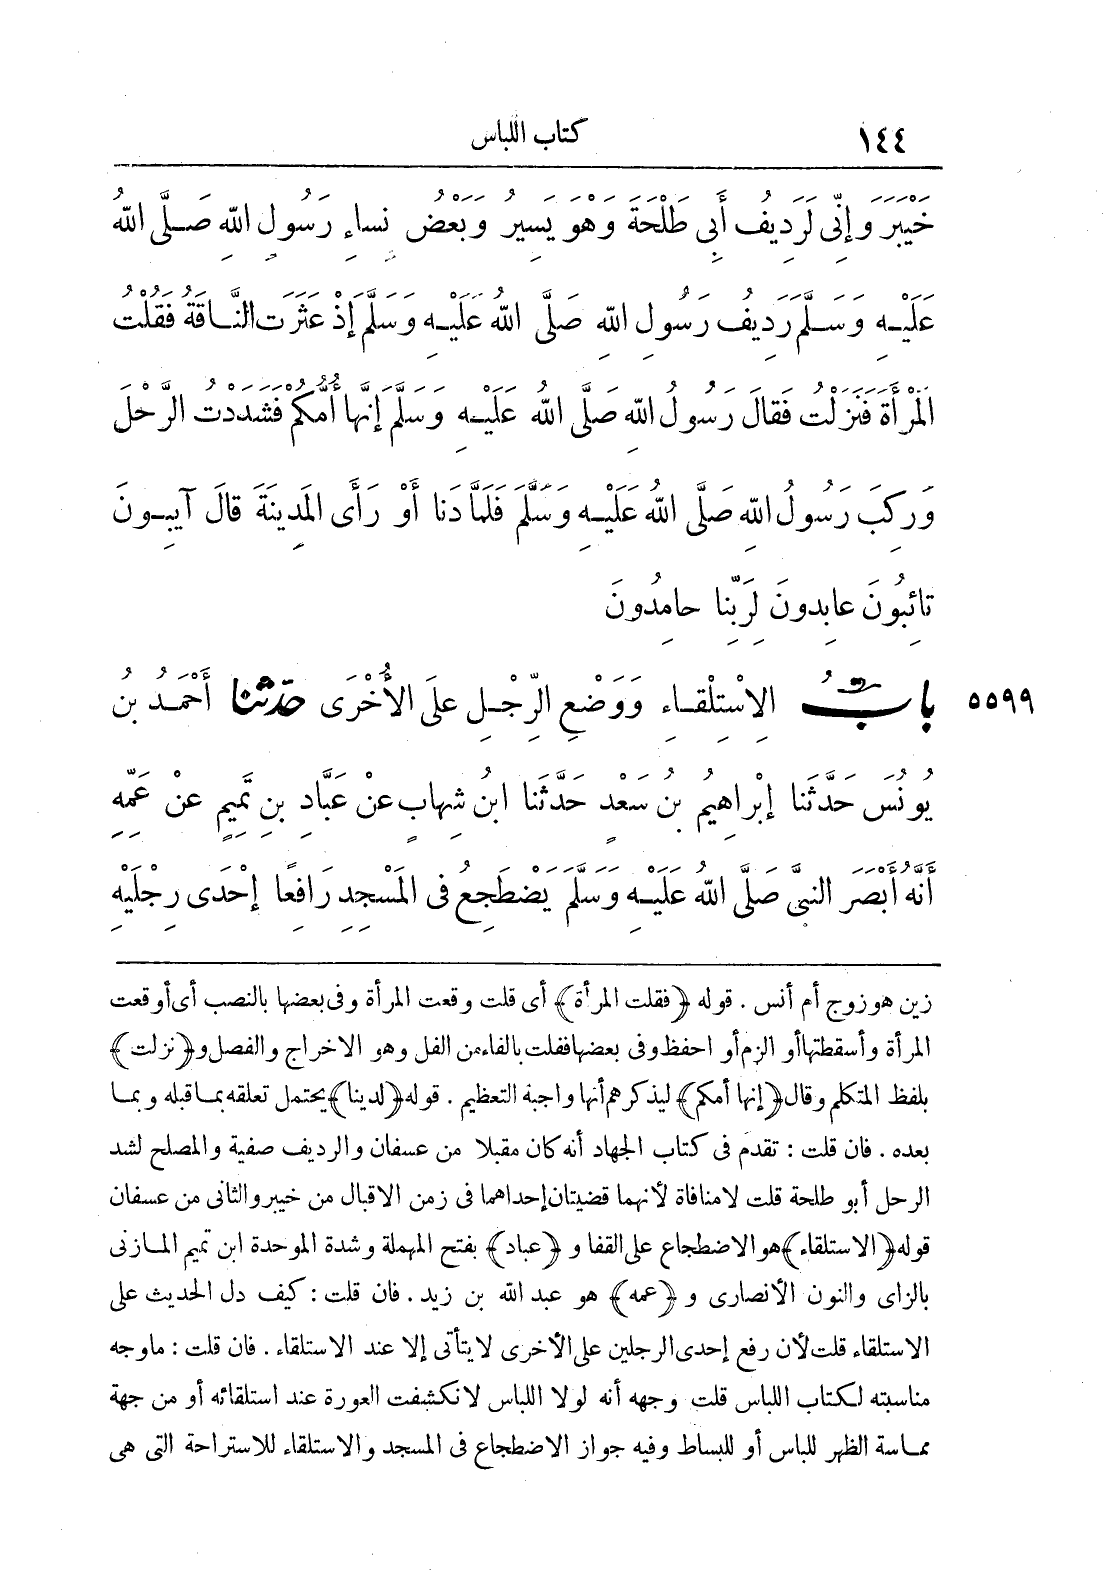 ١٤٤ كتاب اللباس
خَيْبَرَ وَإِنِّى لَرَدِيفُ أَبِى طَلْحَةَ وَهْوَ يَسِيرُ وَبَعْضُ نِسَاءِ رَسُولِ اللهِ صَلَّى اللهُ
عَلَيْهِ وَسَلَّمَ رَدِيفُ رَسُولِ اللهِ صَلَّى اللهُ عَلَيْهِ وَسَلَّمَ إِذْ عَثَرَتِ النَّاقَةُ فَقُلْتُ
الْمَرْأَةَ فَنَزَلْتُ فَقَالَ رَسُولُ اللهِ صَلَّى اللهُ عَلَيْهِ وَسَلَّمَ إِنَّهَا أُمُّكُمْ فَشَدَدْتُ الرَّحْلَ
وَرَكِبَ رَسُولُ اللهِ صَلَّى اللهُ عَلَيْهِ وَسَلَّمَ فَلَمَّا دَنَا أَوْ رَأَى الْمَدِينَةَ قَالَ آيِبُونَ
تَائِبُونَ عَابِدُونَ لِرَبِّنَا حَامِدُونَ
٥٥٩٩ بابُ الِاسْتِلْقَاءِ وَوَضْعِ الرِّجْلِ عَلَى الْأُخْرَى حدّثنا أَحْمَدُ بْنُ
يُونُسَ حَدَّثَنَا إِبْرَاهِيمُ بْنُ سَعْدٍ حَدَّثَنَا ابْنُ شِهَابٍ عَنْ عَبَّادِ بْنِ تَمِيمٍ عَنْ عَمِّهِ
أَنَّهُ أَبْصَرَ النَّبِىَّ صَلَّى اللهُ عَلَيْهِ وَسَلَّمَ يَضْطَجِعُ فِى الْمَسْجِدِ رَافِعًا إِحْدَى رِجْلَيْهِ
زين هو زوج أم أنس . قوله ﴿فقلت المرأة﴾ أى قلت وقعت المرأة وفى بعضها بالنصب أى أوقعت
المرأة وأسقطتها أو الزم أو احفظ وفى بعضها ففلت بالفاء من الفل وهو الاخراج والفصل و﴿نزلت﴾
بلفظ المتكلم وقال ﴿إنها أمكم﴾ ليذكرهم أنها واجبة التعظيم . قوله ﴿لدينا﴾ يحتمل تعلقه بما قبله وبما
بعده . فان قلت : تقدم فى كتاب الجهاد أنه كان مقبلا من عسفان والرديف صفية والمصلح لشد
الرحل أبو طلحة قلت لا منافاة لأنهما قضيتان إحداهما فى زمن الاقبال من خيبر والثانى من عسفان
قوله ﴿الاستلقاء﴾ هو الاضطجاع على القفا و ﴿عباد﴾ بفتح المهملة وشدة الموحدة ابن تميم المازنى
بالزاى والنون الأنصارى و ﴿عمه﴾ هو عبد الله بن زيد . فان قلت : كيف دل الحديث على
الاستلقاء قلت لأن رفع إحدى الرجلين على الأخرى لا يتأتى إلا عند الاستلقاء . فان قلت : ما وجه
مناسبته لكتاب اللباس قلت وجهه أنه لولا اللباس لانكشفت العورة عند استلقائه أو من جهة
مماسة الظهر للباس أو للبساط وفيه جواز الاضطجاع فى المسجد والاستلقاء للاستراحة التى هى